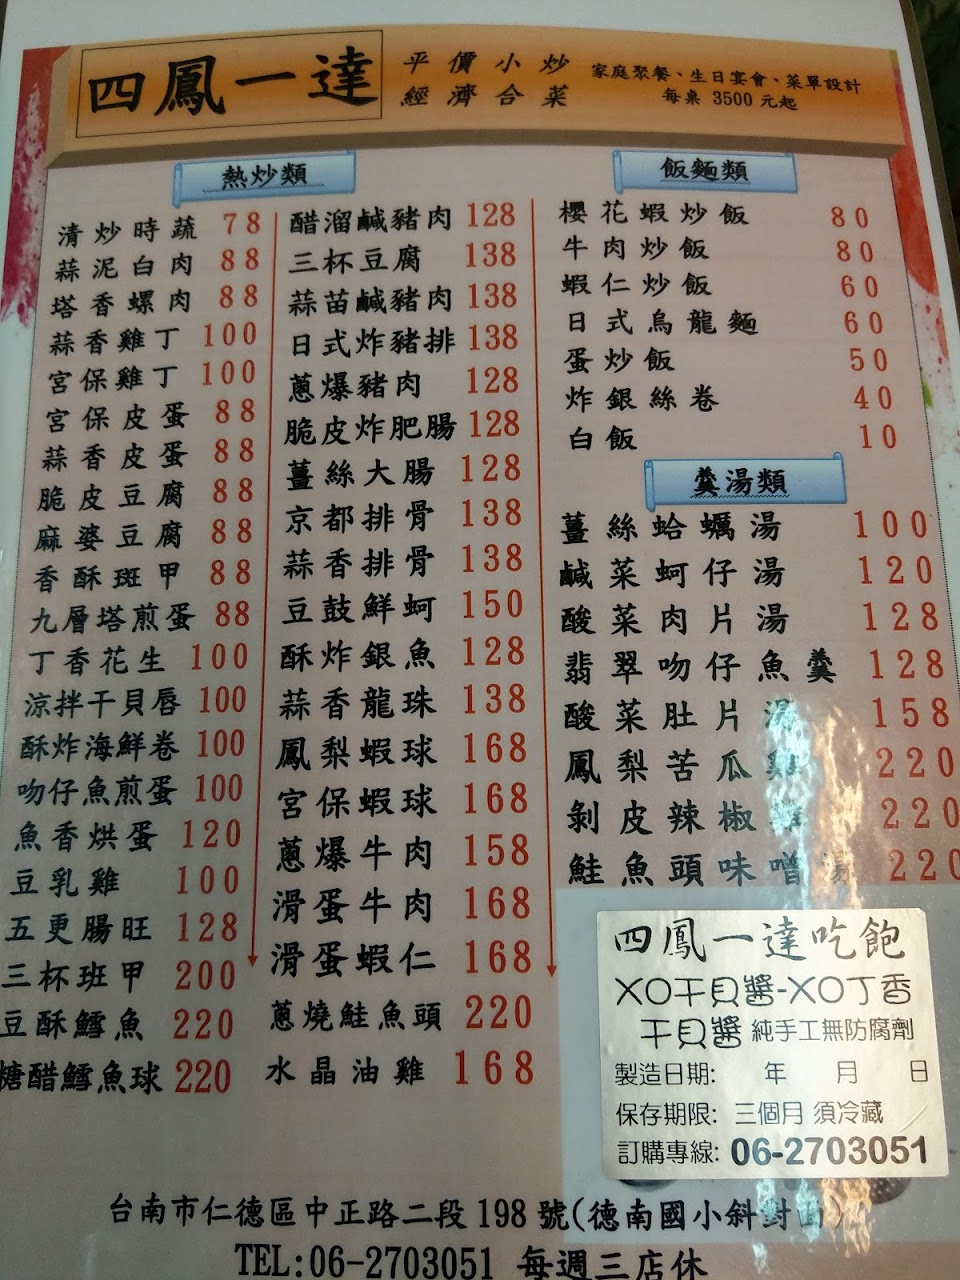 四鳳一達
平價小炒
經濟合菜
家庭聚餐、生日宴會、菜單設計
每桌 3500 元起
熱炒類
清炒時蔬 78
蒜泥白肉 88
塔香螺肉 88
蒜香雞丁 100
宮保雞丁 100
宮保皮蛋 88
蒜香皮蛋 88
脆皮豆腐 88
麻婆豆腐 88
香酥斑甲 88
九層塔煎蛋 88
丁香花生 100
涼拌干貝唇 100
酥炸海鮮卷 100
吻仔魚煎蛋 100
魚香烘蛋 120
豆乳雞 100
五更腸旺 128
三杯班甲 200
豆酥鱈魚 220
糖醋鱈魚球 220
醋溜鹹豬肉 128
三杯豆腐 138
蒜苗鹹豬肉 138
日式炸豬排 138
蔥爆豬肉 128
脆皮炸肥腸 128
薑絲大腸 128
京都排骨 138
蒜香排骨 138
豆鼓鮮蚵 150
酥炸銀魚 128
蒜香龍珠 138
鳳梨蝦球 168
宮保蝦球 168
蔥爆牛肉 158
滑蛋牛肉 168
滑蛋蝦仁 168
蔥燒鮭魚頭 220
水晶油雞 168
飯麵類
櫻花蝦炒飯 80
牛肉炒飯 80
蝦仁炒飯 60
日式烏龍麵 60
蛋炒飯 50
炸銀絲卷 40
白飯 10
羹湯類
薑絲蛤蠣湯 100
鹹菜蚵仔湯 120
酸菜肉片湯 128
翡翠吻仔魚羹 128
酸菜肚片湯 158
鳳梨苦瓜雞 220
剝皮辣椒雞 220
鮭魚頭味噌湯 220
四鳳一達吃飽
XO干貝醬-XO丁香
干貝醬 純手工無防腐劑
製造日期: 年 月 日
保存期限: 三個月 須冷藏
訂購專線: 06-2703051
台南市仁德區中正路二段 198 號(德南國小斜對面)
TEL:06-2703051 每週三店休